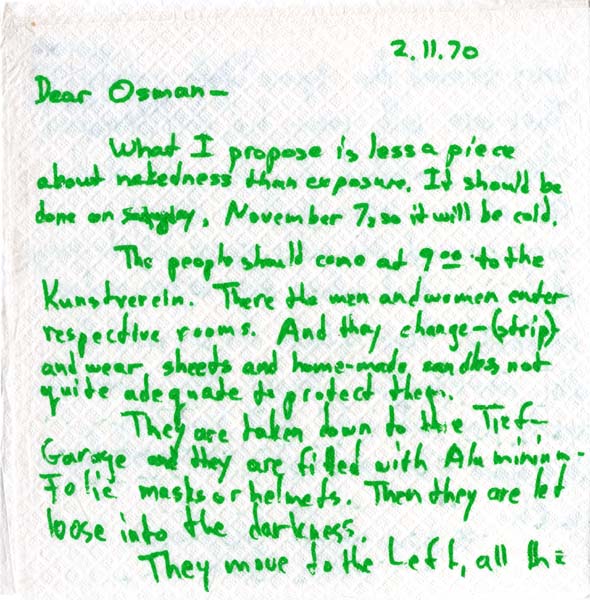 2.11.70
Dear Osman—
What I propose is less a piece
about nakedness than exposure. It should be
done on , November 7, so it will be cold.
The people should come at 9 00 to the
Kunstverein. There the men and women enter
respective rooms. And they change—(strip)
and wear sheets and home-made sandles, not
quite adequate to protect them.
They are taken down to the Tief-
Garage and they are fitted with Aluminium-
Folie masks or helmets. Then they are let
loose into the darkness.
They move to the Left, all the